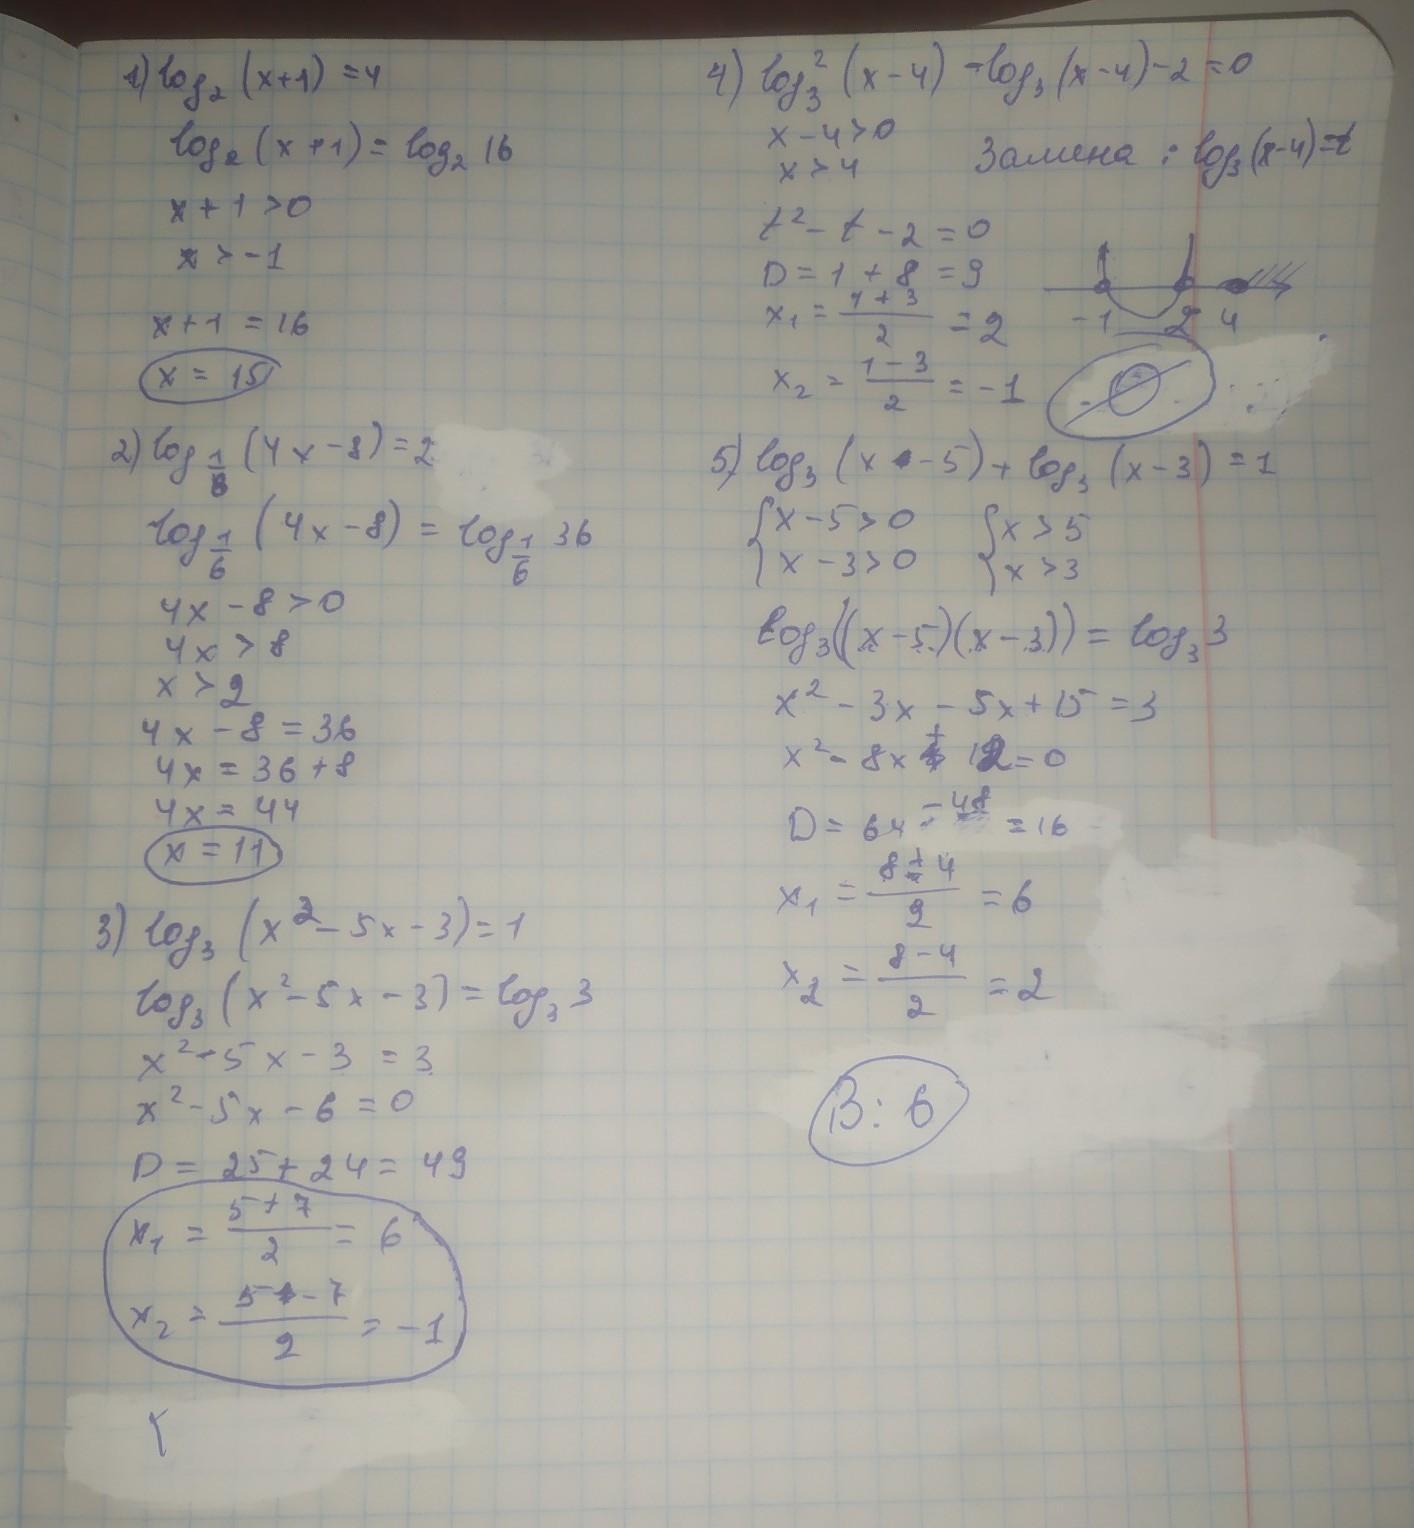 1) log₂ (x+1) = 4
log₂ (x+1) = log₂ 16
x + 1 > 0
x > -1
x + 1 = 16
x = 15
2) log_{1/6} (4x - 8) = 2
log_{1/6} (4x - 8) = log_{1/6} 36
4x - 8 > 0
4x > 8
x > 2
4x - 8 = 36
4x = 36 + 8
4x = 44
x = 11
3) log₃ (x² - 5x - 3) = 1
log₃ (x² - 5x - 3) = log₃ 3
x² - 5x - 3 = 3
x² - 5x - 6 = 0
D = 25 + 24 = 49
x₁ = (5 + 7)/2 = 6
x₂ = (5 - 7)/2 = -1
4) log₃² (x - 4) - log₃ (x - 4) - 2 = 0
x - 4 > 0
x > 4
Замена : log₃ (x - 4) = t
t² - t - 2 = 0
D = 1 + 8 = 9
x₁ = (1 + 3)/2 = 2
x₂ = (1 - 3)/2 = -1
-1 2 4
5) log₃ (x - 5) + log₃ (x - 3) = 1
{ x - 5 > 0 { x > 5
{ x - 3 > 0 { x > 3
log₃ ((x - 5)(x - 3)) = log₃ 3
x² - 3x - 5x + 15 = 3
x² - 8x + 12 = 0
D = 64 - 48 = 16
x₁ = (8 + 4)/2 = 6
x₂ = (8 - 4)/2 = 2
В: 6